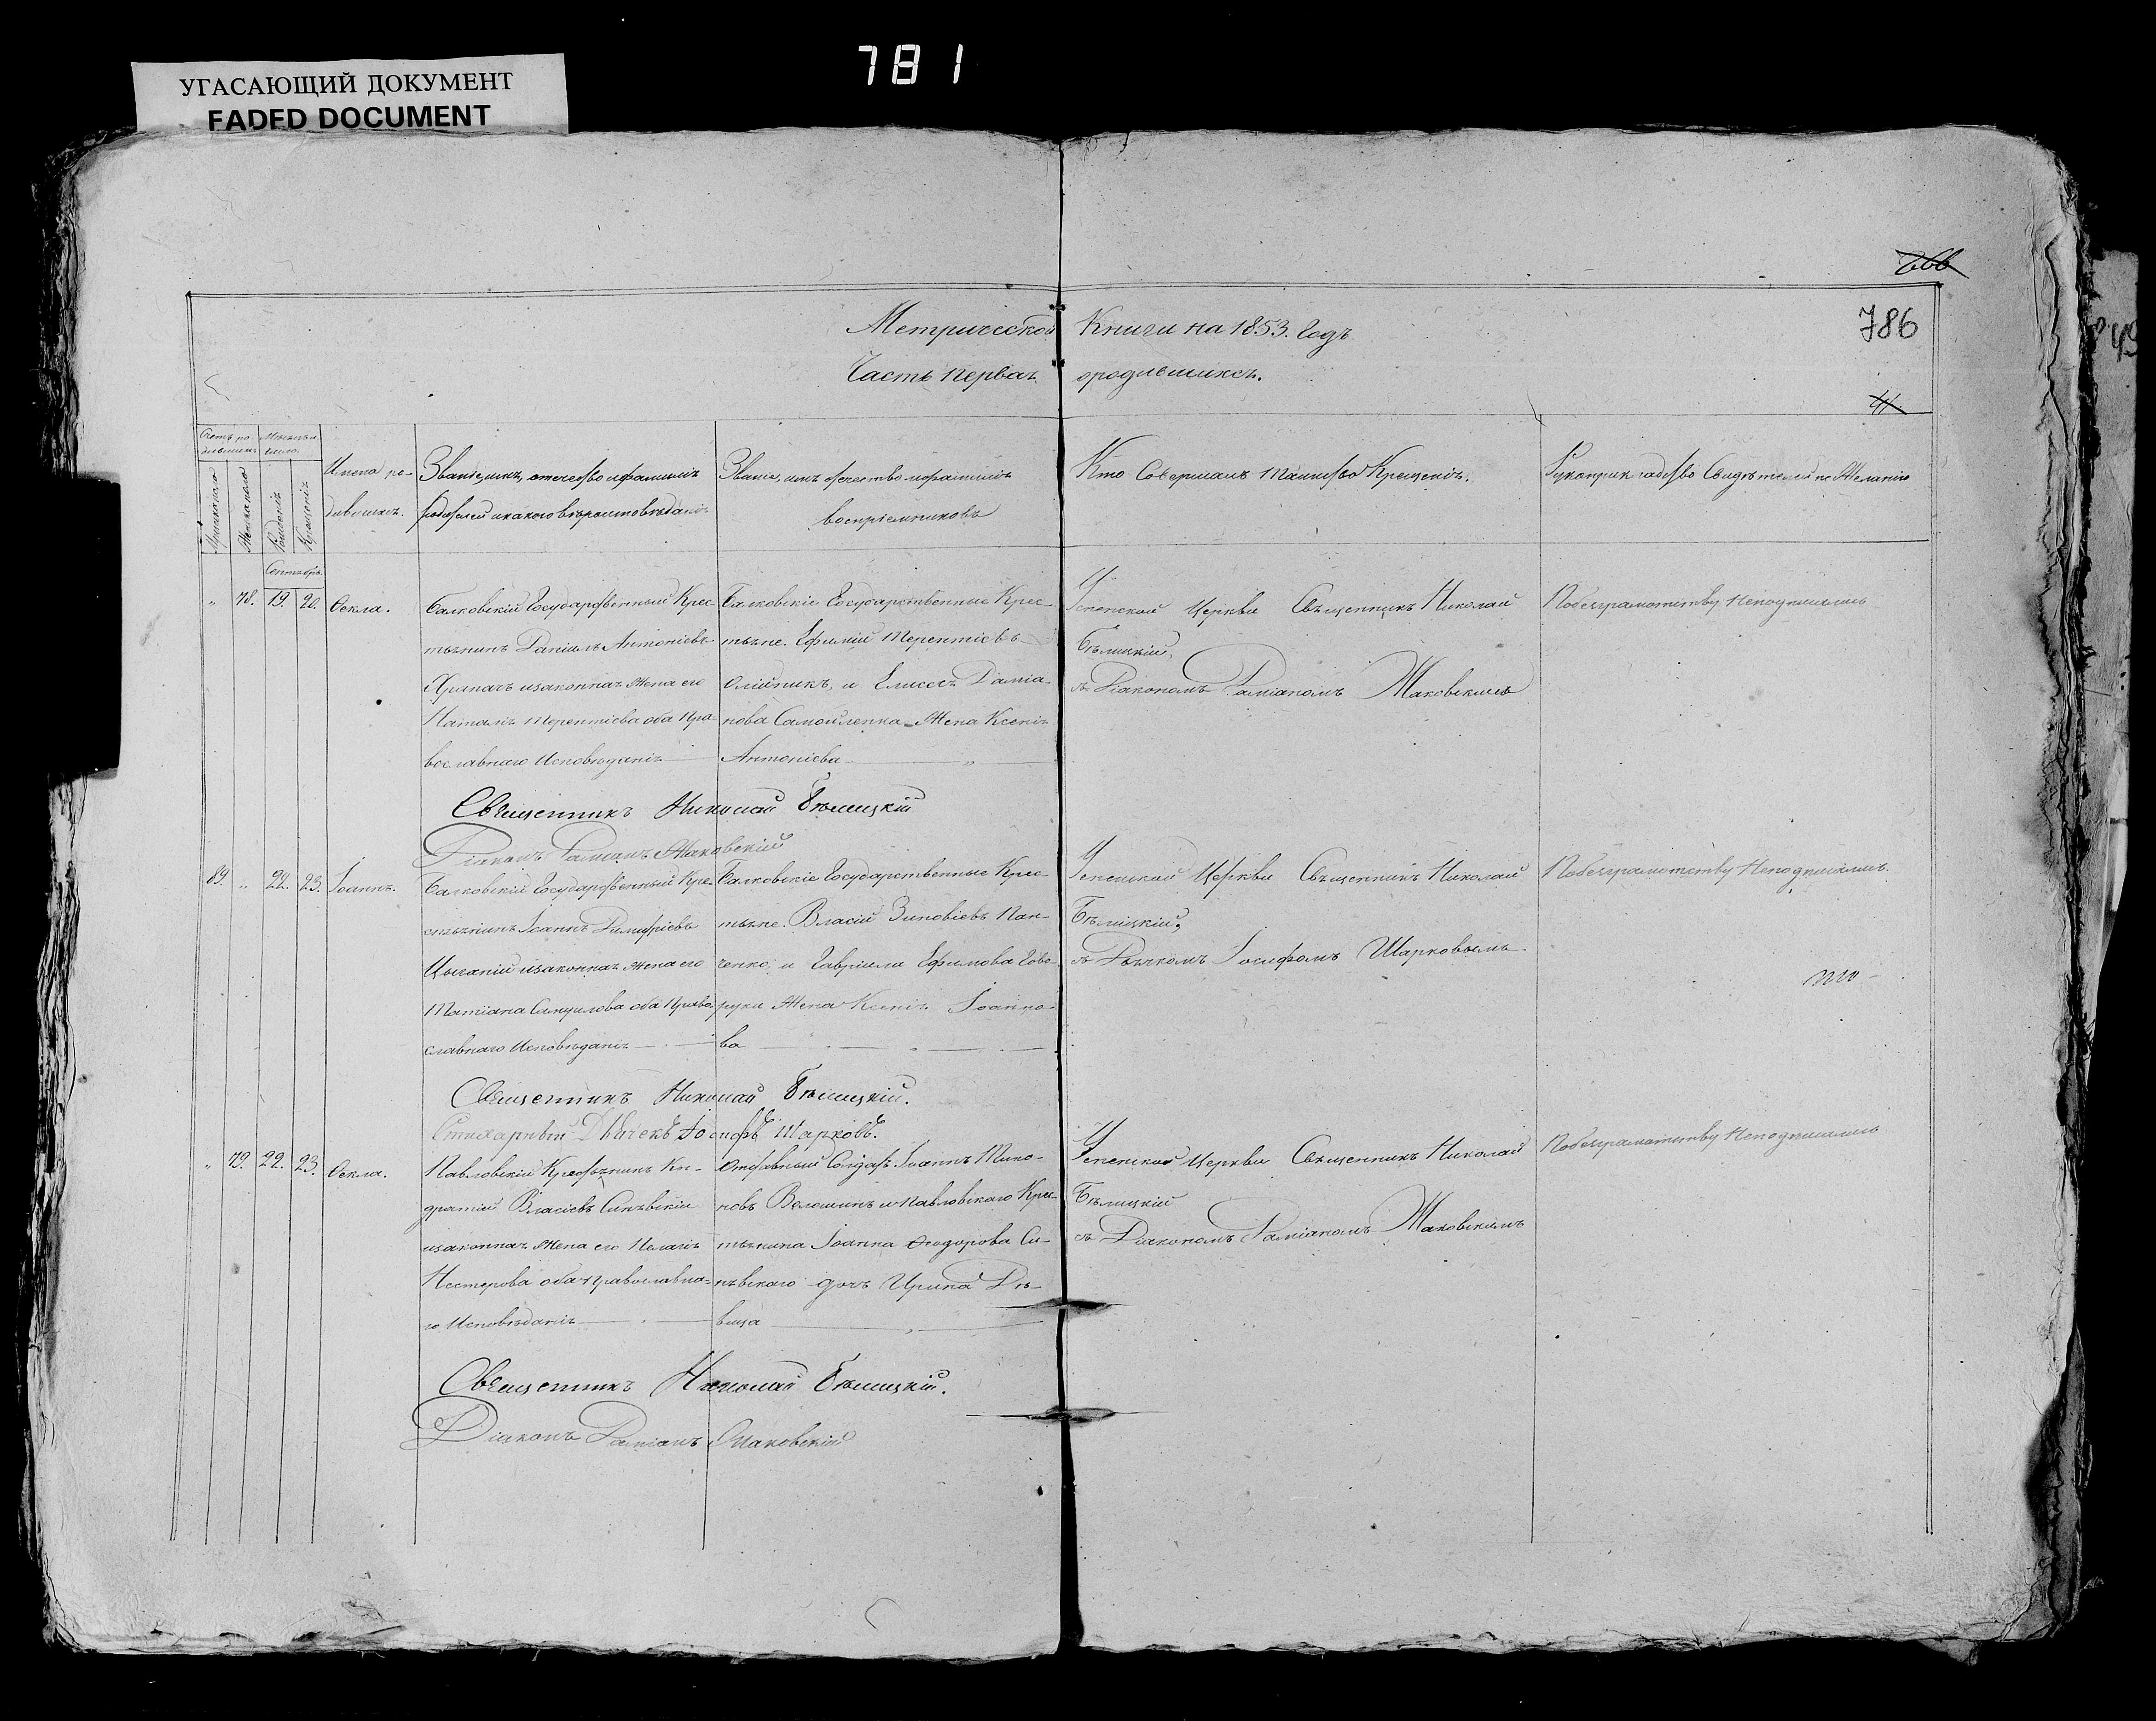 781
УГАСАЮЩИЙ ДОКУМЕНТ
FADED DOCUMENT
Метрической Книги на 1853. Годъ
786
Часть первая ородившихся.
Счетъ ро-
дившихся
Мѣсяцъ и
число.
Мужескаго
Женскаго
Рожденія
Крещенія
Имена ро-
дившихся.
Званіе, имя, отечество и фамилія
родителей и какого вѣроисповѣданія
Званіе, имя отечество и фамилія
воспріемниковъ
Кто Совершалъ Таинство Крещенія.
Рукоприкладство Свидѣтелей по Желанію
Сентябрь
" 78. 19. 20. Ѳекла.
Балковскій Государственный Крес
тьянинъ Даніилъ Антоніевъ
Храпачъ и законная Жена его
Наталія Терентіева оба Пра-
вославнаго Исповѣданія
Балковскіе Государственные Крес-
тьяне. Ефимій Терентіевъ
Олійникъ, и Елисея Даміа-
нова Самойленка Жена Ксенія
Антоніева
Успенской Церкви Священникъ Николай
Бѣлицкій,
съ Діакономъ Даміаномъ Маковскимъ
По безграмотству Неподписались
Священникъ Николай Бѣлицкій
Діаконъ Даміанъ Маковскій
89. " 22. 23. Іоаннъ.
Балковскій Государственный Кре-
стьянинъ Іоаннъ Димитріевъ
Цыганій и законная Жена его
Татіана Самуилова оба Право-
славнаго Исповѣданія
Балковскіе Государственные Крес-
тьяне. Власій Зиновіевъ Пан-
ченко, и Гавріила Ефимова Гово-
рухи Жена Ксенія Іоанно-
ва
Успенской Церкви Священникъ Николай
Бѣлицкій,
съ Дьячкомъ Іосифомъ Шарковымъ
По безграмотству Неподписались.
Священникъ Николай Бѣлицкій.
Стихарный Дьячекъ Іосифъ Шарковъ.
" 79. 22. 23. Ѳекла.
Павловскій Крестьянинъ Кон-
дратій Власіевъ Синѣвскій
и законная Жена его Пелагія
Нестерова оба Православна-
го Исповѣданія
Отставный Солдатъ Іоаннъ Тихо-
новъ Волошинъ и Павловскаго Крес-
тьянина Іоанна Ѳеодорова Си-
нѣвскаго дочь Ирина Дѣ-
вица
Успенской Церкви Священникъ Николай
Бѣлицкій
съ Діакономъ Даміаномъ Маковскимъ
По безграмотству Неподписались
Священникъ Николай Бѣлицкій.
Діаконъ Даміанъ Маковскій